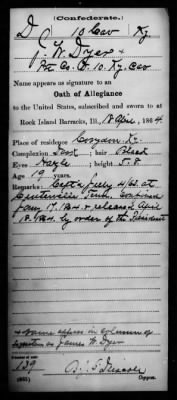 (Confederate.)
D 10 Cav Ky
J. W. Dyer +
Pvt Co. D. 10. Ky. Cav
Name appears as signature to an
Oath of Allegiance
to the United States, subscribed and sworn to at
Rock Island Barracks, Ill., 18 April, 1864
Place of residence Corydon Ky.
Complexion Dark; hair Black
Eyes Hazle; height 5.8
Age 19 years
Remarks: Capt'd July 4/63. at
Tenn.
Jany 17. 1864 & released April
18. 1864. by order of the President
+ Name appears in column of
signatures as James W. Dyer
139
Copyist.